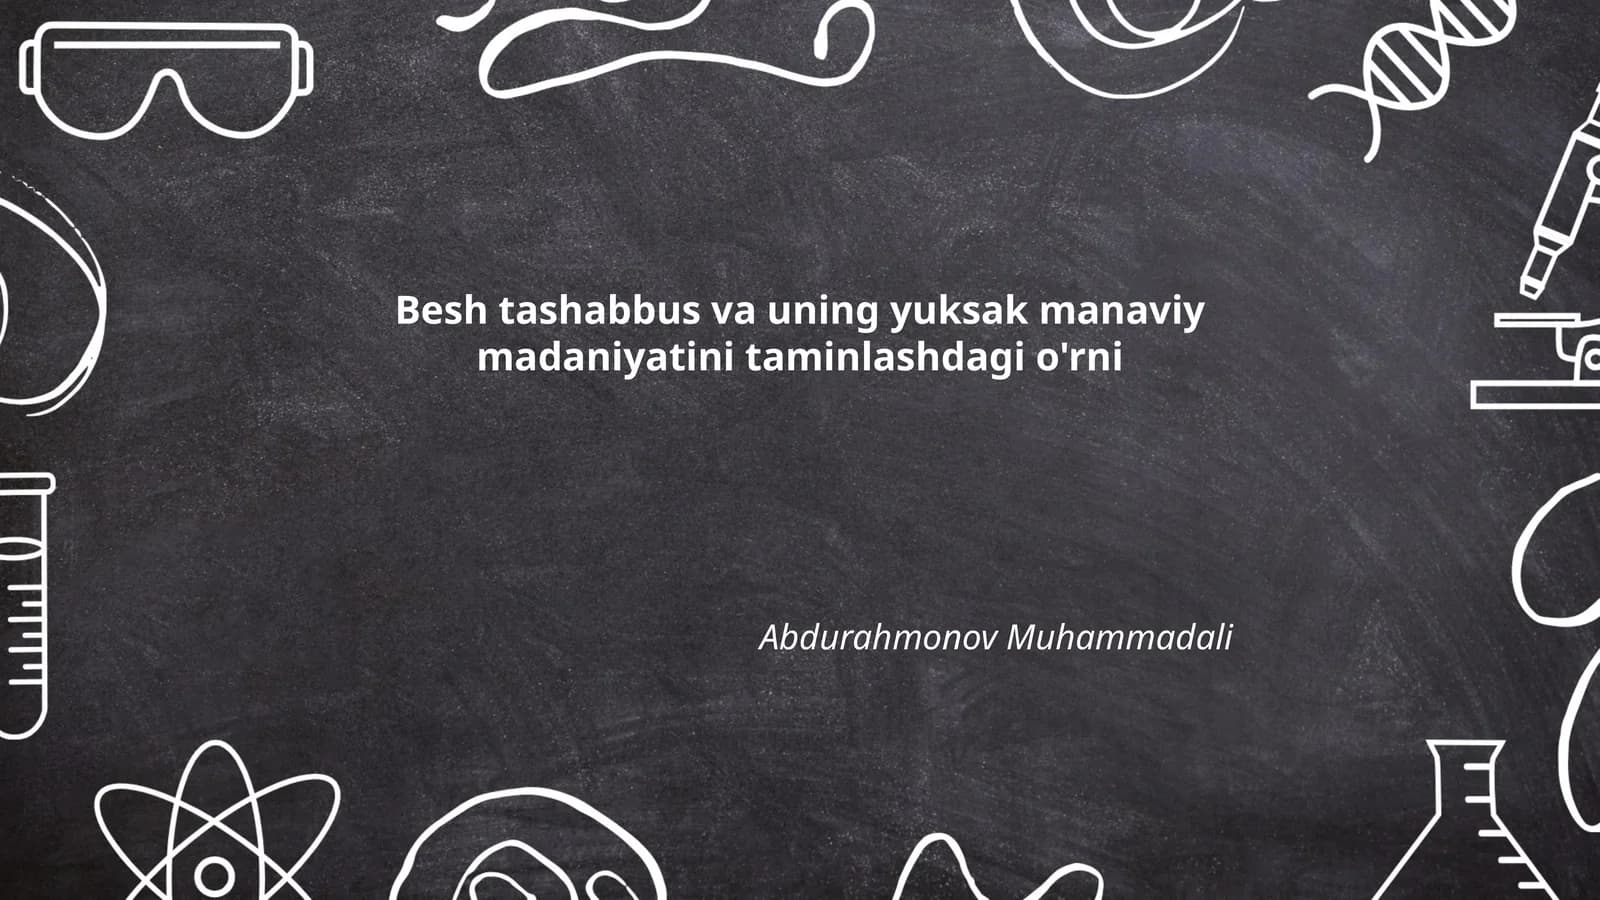 Besh tashabbus va uning yuksak manaviy
madaniyatini taminlashdagi o'rni
Abdurahmonov Muhammadali